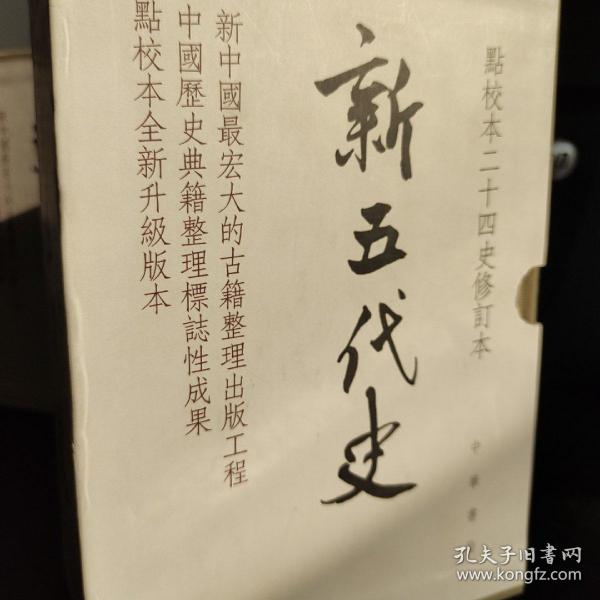 點校本二十四史修訂本
新五代史
中華書
新中國最宏大的古籍整理出版工程
中國歷史典籍整理標誌性成果
點校本全新升級版本
孔夫子旧書网
www.kongfz.com